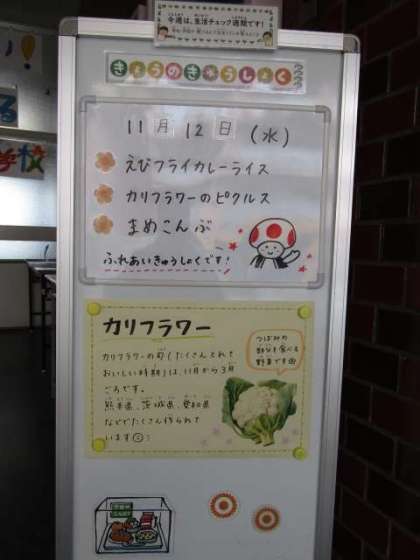 今週は、生活チェック週間です！
きょうのきゅうしょく
11月12日(水)
えびフライカレーライス
カリフラワーのピクルス
まめこんぶ
ふれあいきゅうしょくです！
カリフラワー
カリフラワーの旬(たくさんとれて
おいしい時期)は、11月から3月
ごろです。
熊本県、茨城県、愛知県
などでたくさん作られて
います
つぼみの
部分を食べる
野菜です
る
学校